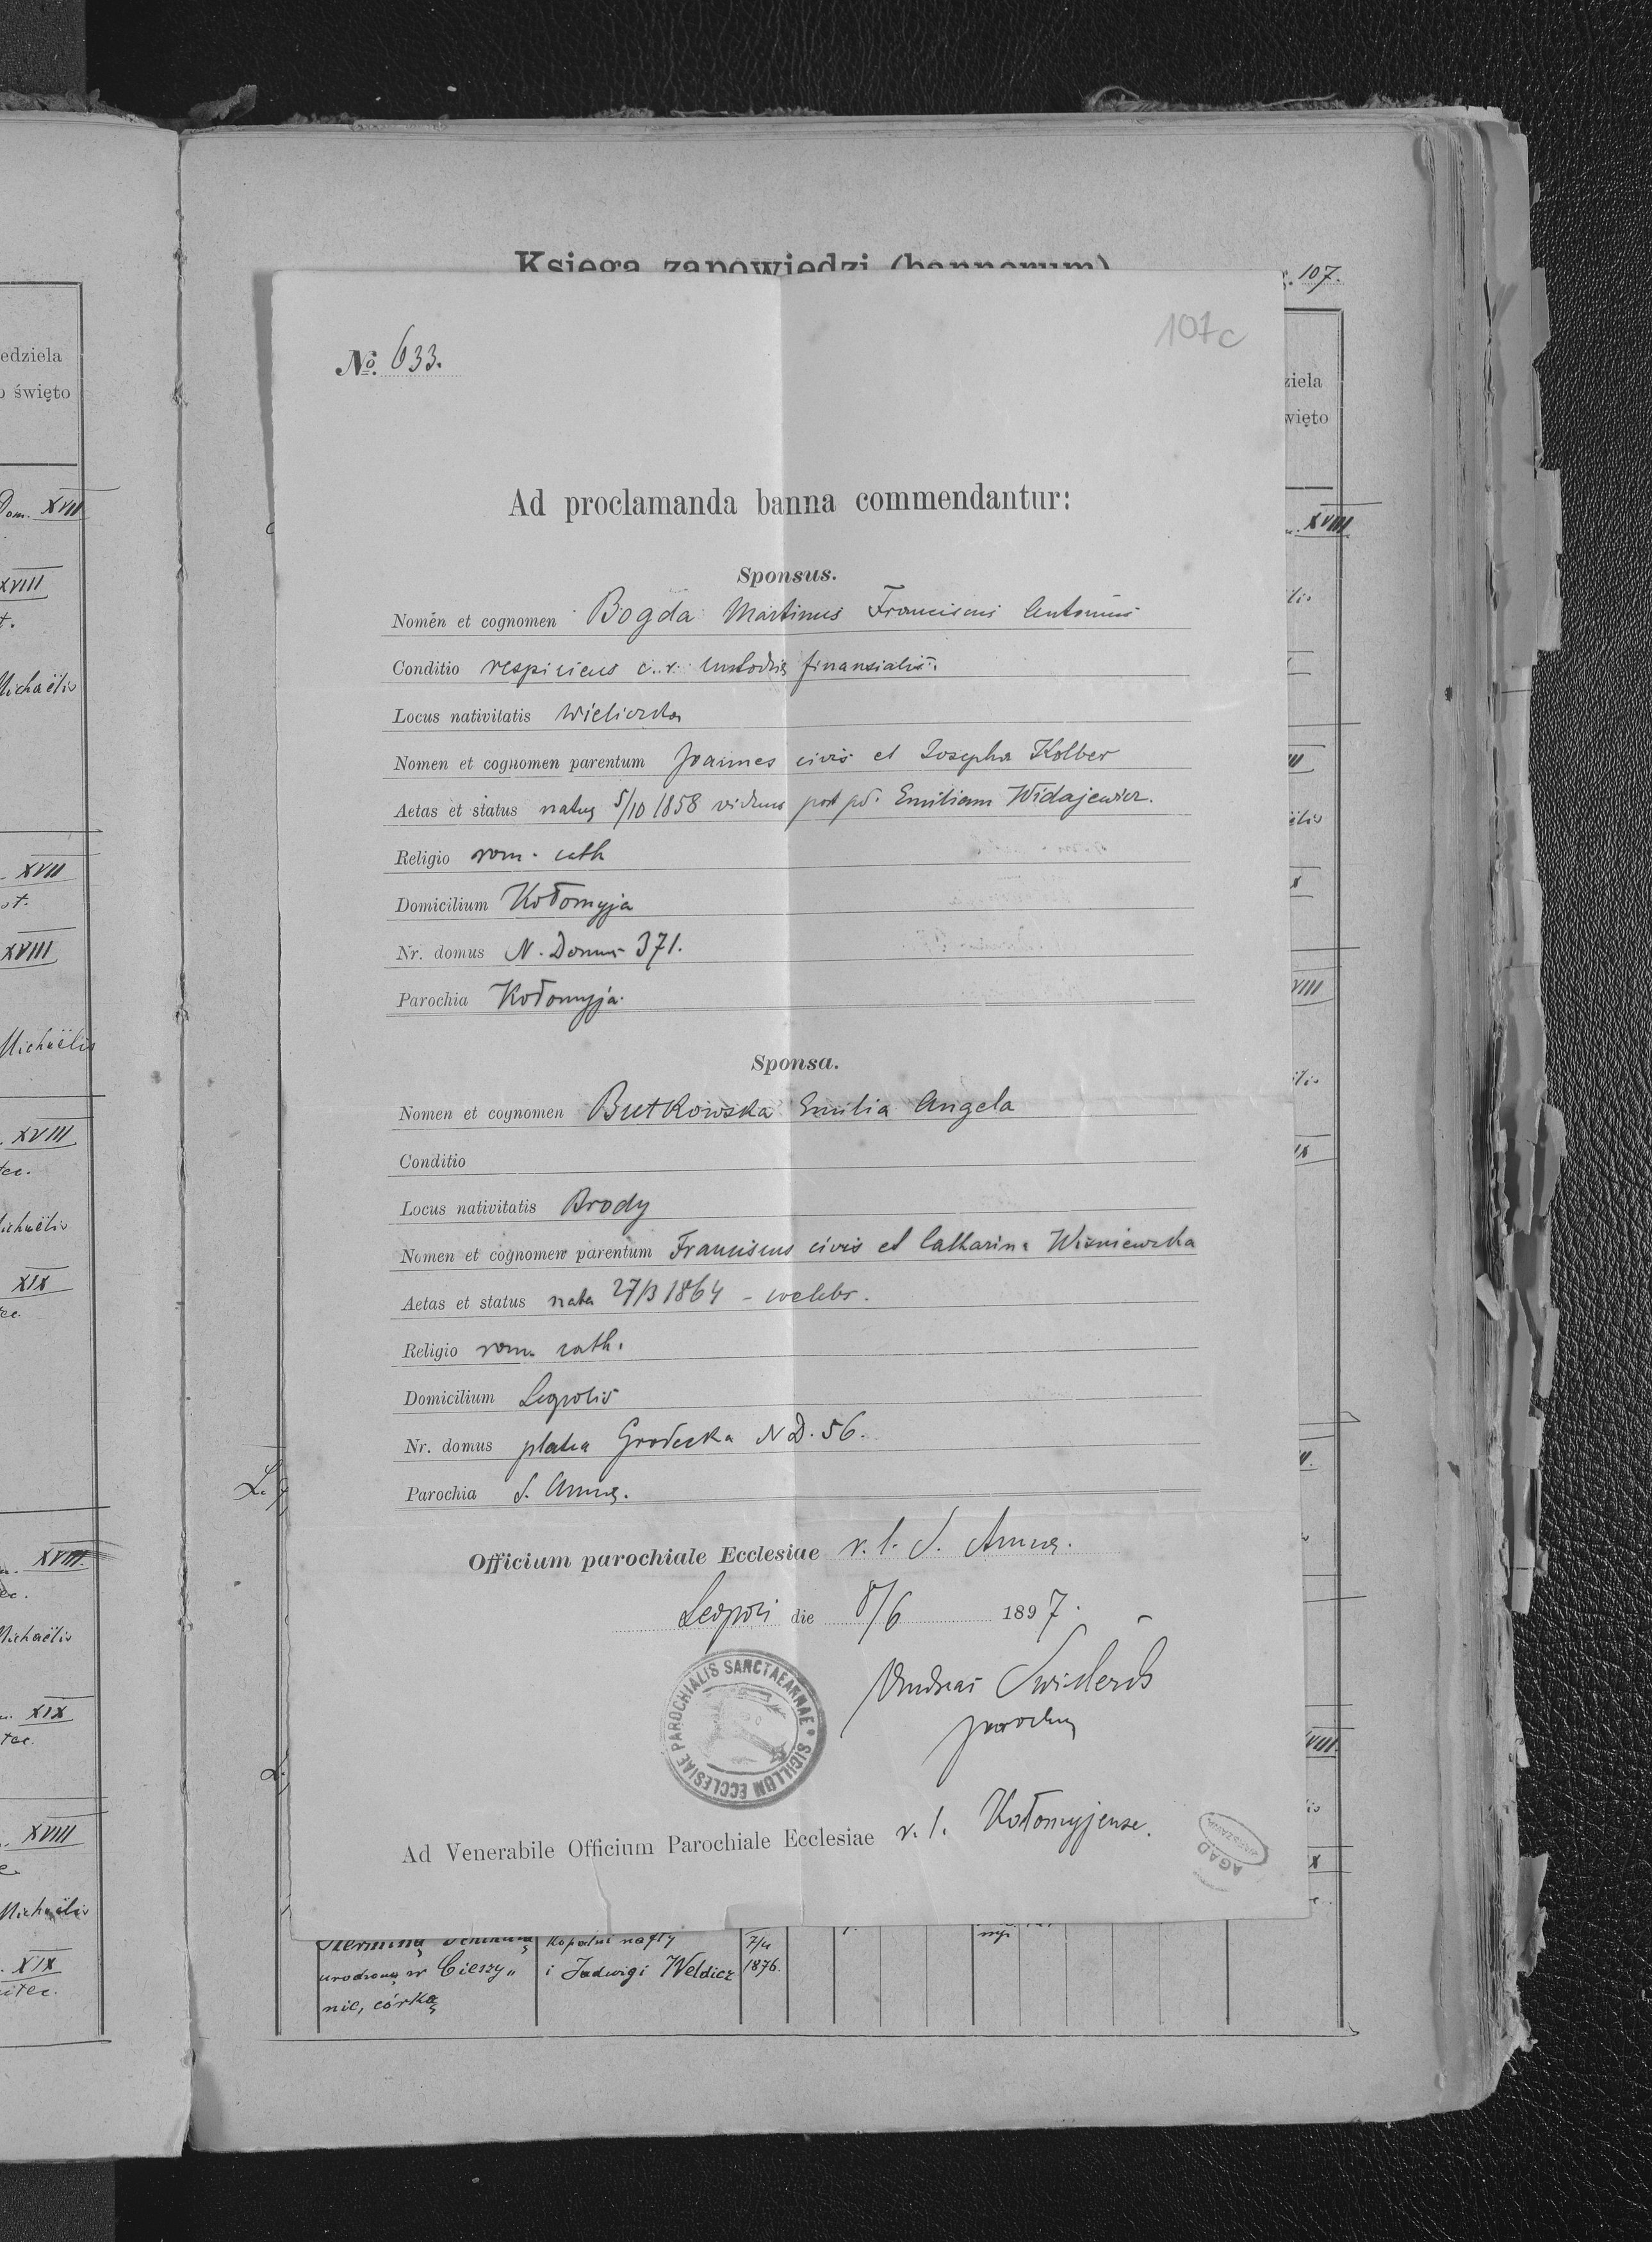 Księga zapowiedzi (bannorum)
107.
107c
edziela
o święto
ziela
więto
Dom. XVII
XVIII
Michaëlis
XVII
XVIII
Michaëlis
XVIII
ichaëlis
XIX
XVIII
Michaëlis
XIX
XVIII
Michaëlis
XIX
XVIII
No. 633.
Ad proclamanda banna commendantur:
Sponsus.
Nomen et cognomen Bogda Martinus Franciscus Antonius
Conditio respiciens c. r. custodiæ finansialis.
Locus nativitatis Wieliczka
Nomen et cognomen parentum Joannes civis et Josepha Kolber
Aetas et status natus 5/10 1858 viduus post pd. Emiliam Widajewicz.
Religio rom. cath
Domicilium Kołomyja
Nr. domus N. Domus 371.
Parochia Kołomyja.
Sponsa.
Nomen et cognomen Butkowska Emilia Angela
Conditio
Locus nativitatis Brody
Nomen et cognomen parentum Franciscus civis et Catharina Wiśniewska
Aetas et status nata 27/3 1864 - coelebs.
Religio rom. cath.
Domicilium Leopolis
Nr. domus platea Grodecka ND. 56.
Parochia S. Annæ.
Officium parochiale Ecclesiae r. l. S. Annæ.
Leopoli die 8/6 1897.
Andreas
parochus
SIGILLUM ECCLESIAE PAROCHIALIS SANCTAE ANNAE
Ad Venerabile Officium Parochiale Ecclesiae r. l. Kołomyjense.
AGAD
WARSZAWA
kopalni nafty 7/4
urodzoną w Cieszy„ i Jadwigi Weldicz 1876.
nie, córkę